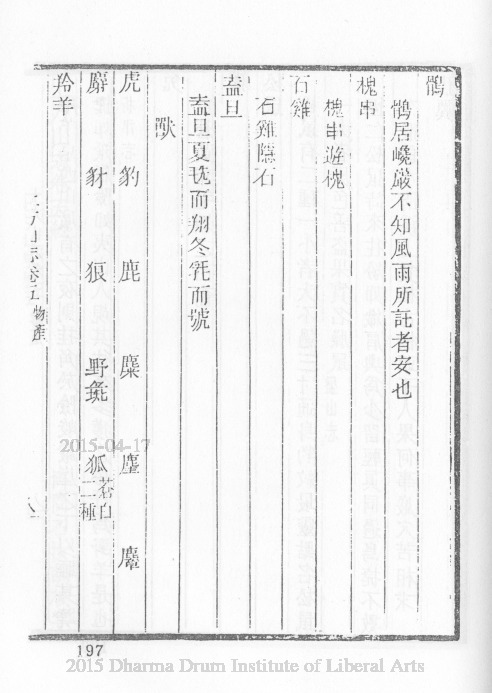 鶻
鶻居巉巖不知風雨所託者安也
槐串
槐串遊槐
石雞
石雞隱石
盍旦
盍旦夏毨而翔冬氄而號
獸
虎 豹 鹿 麋 麈 麞
麝 豺 狼 野彘 狐蒼白二種
羚羊
志卷五 物產
197
2015-04-17
2015 Dharma Drum Institute of Liberal Arts